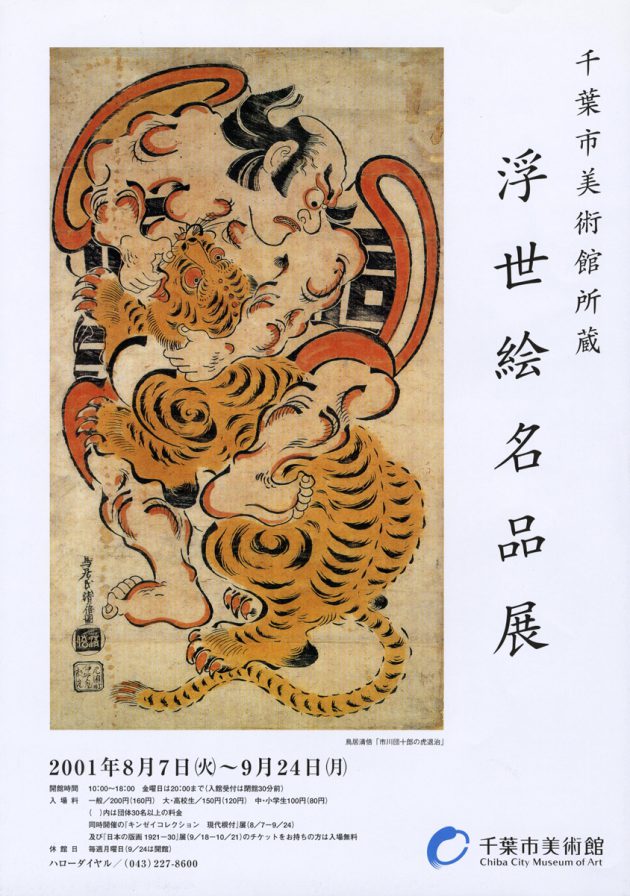 千葉市美術館所蔵
浮世絵名品展
鳥居清倍「市川団十郎の虎退治」
2001年8月7日㈫～9月24日㈪
開館時間 10:00～18:00 金曜日は20:00まで(入館受付は閉館30分前)
入場料 一般/200円(160円) 大・高校生/150円(120円) 中・小学生100円(80円)
( )内は団体30名以上の料金
同時開催の「キンゼイコレクション 現代根付」展(8/7－9/24)
及び「日本の版画 1921－30」展(9/18－10/21)のチケットをお持ちの方は入場無料
休館日 毎週月曜日(9/24は開館)
ハローダイヤル/(043)227-8600
千葉市美術館
Chiba City Museum of Art